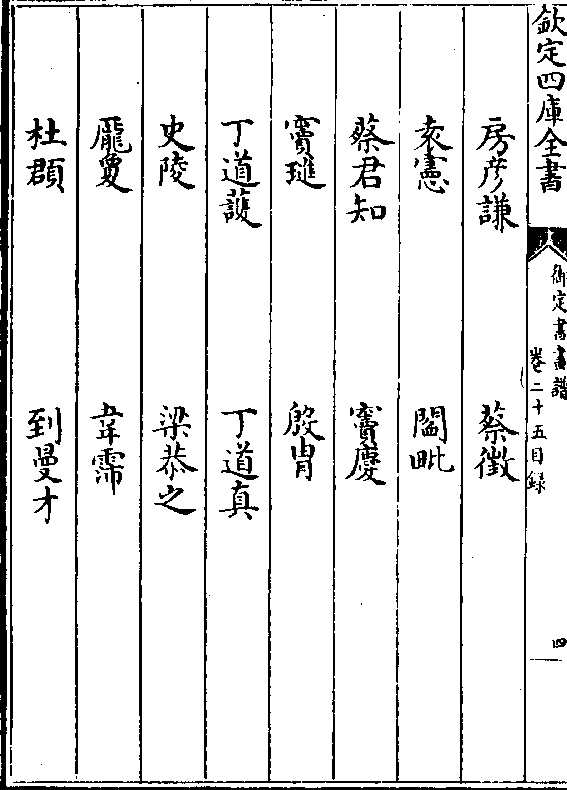 欽定四庫全書
御定書畫譜
卷二十五目録
四
房彦謙 蔡徵
袁憲 閻毗
蔡君知 竇慶
竇璡 殷胄
丁道護 丁道真
史陵 梁恭之
龎夐 韋霈
杜頵 到曼才